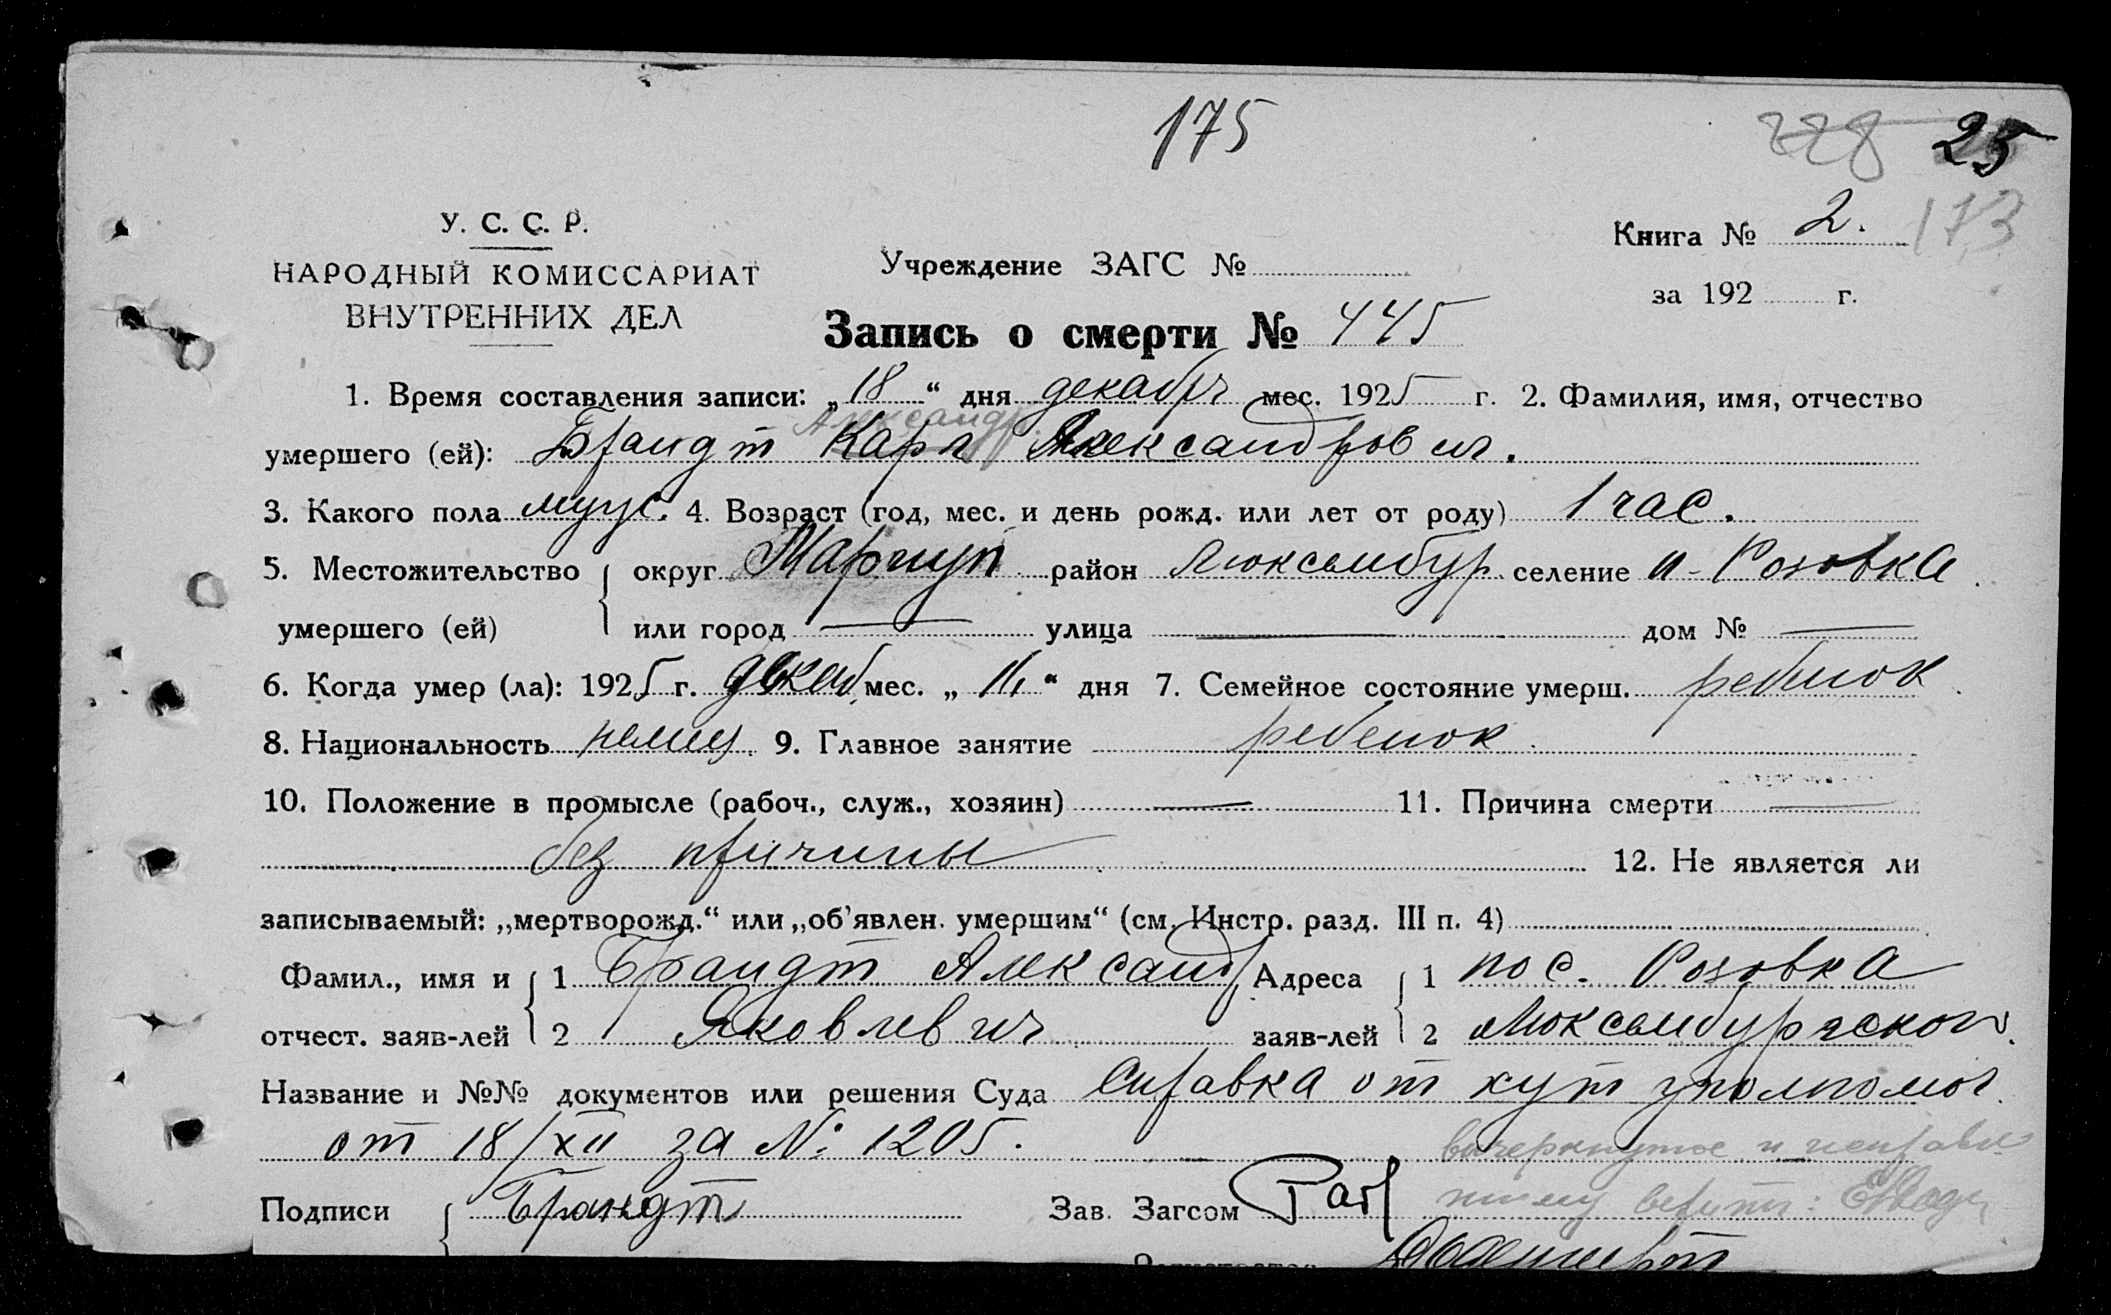 175
228 25
У. С. С. Р.
Книга № 2. 173
НАРОДНЫЙ КОМИССАРИАТ
ВНУТРЕННИХ ДЕЛ
Учреждение ЗАГС №
за 192 г.
Запись о смерти № 445
1. Время составления записи: „18“ дня декабря мес. 1925 г. 2. Фамилия, имя, отчество
Александр
умершего (ей): Брандт Карл Александрович.
3. Какого пола муж. 4. Возраст (год, мес. и день рожд. или лет от роду) 1 час.
5. Местожительство округ Мариуп район Люксембур. селение п. Розовка
умершего (ей) или город — улица — дом № —
6. Когда умер (ла): 1925 г. декаб. мес. „16“ дня 7. Семейное состояние умерш. ребенок
8. Национальность немец. 9. Главное занятие ребенок.
10. Положение в промысле (рабоч., служ., хозяин) — 11. Причина смерти —
без причины 12. Не является ли
записываемый: „мертворожд.“ или „об'явлен. умершим“ (см. Инстр. разд. III п. 4)
Фамил., имя и 1 Брандт Александ Адреса 1 пос. Розовка
отчест. заяв-лей 2 Яковлевич заяв-лей 2 Люксембургского.
Название и №№ документов или решения Суда Справка от хут уполномоч.
от 18/XII за №: 1205.
вычеркнутое и исправлен
Подписи Брандт Зав. Загсом
ному верить: